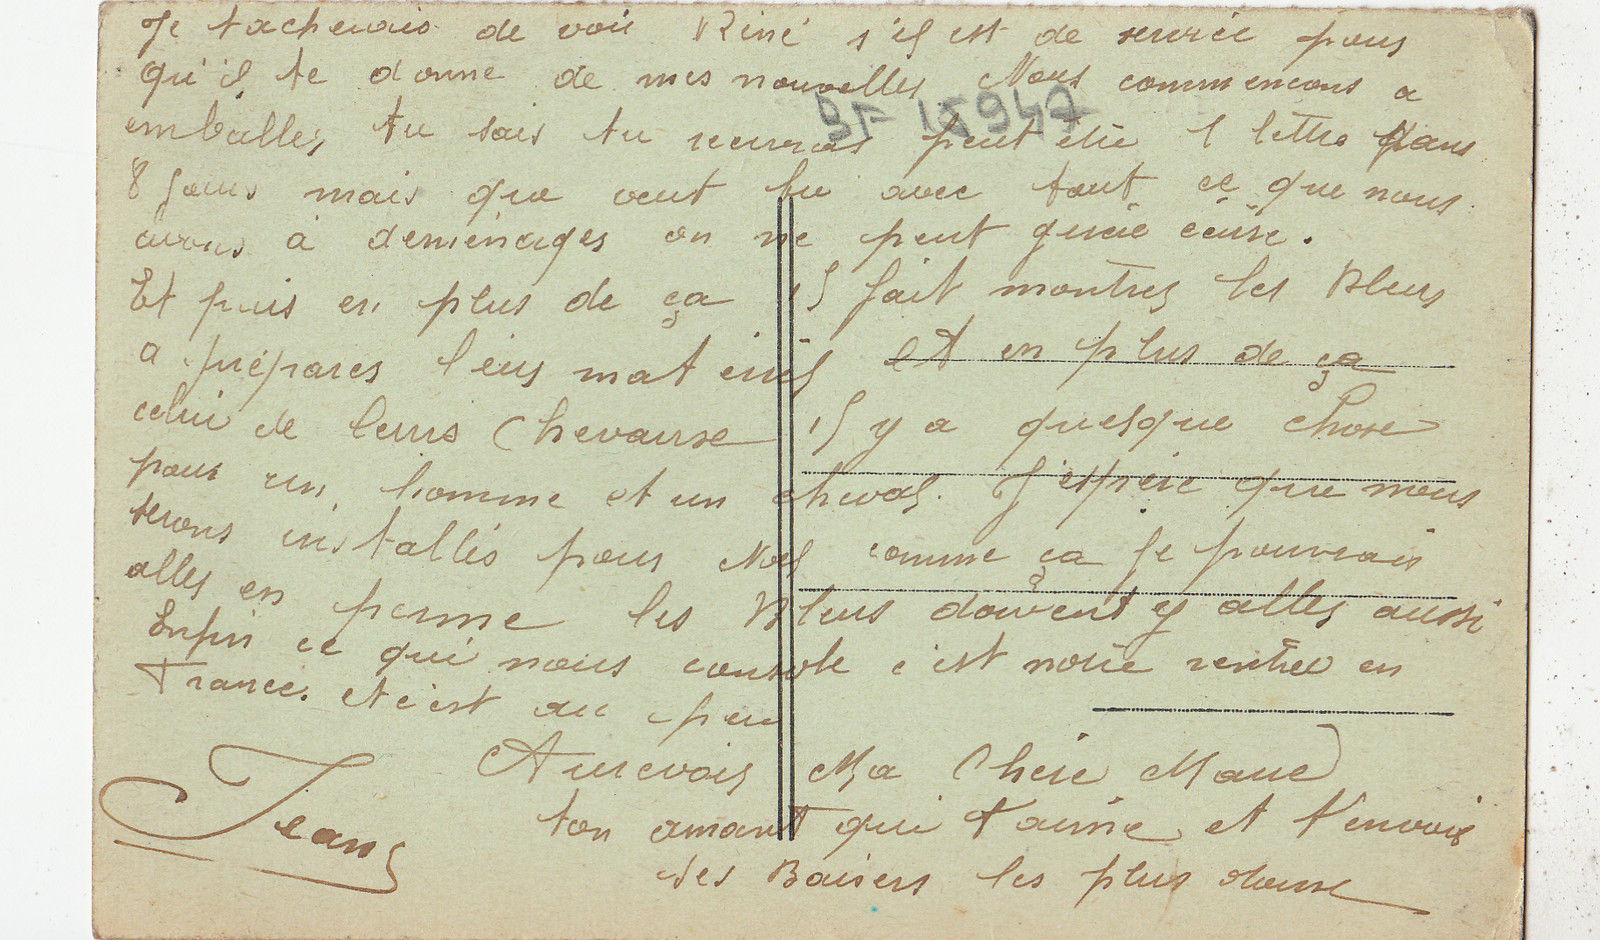 Je tacherais de voir Réné s'il est de servir pour
qu'il te donne de mes nouvelles Nous commencons a
emballer, tu sais tu recevras peut etre 1 lettre dans
8 jours mais que veut tu avec tout ce que nous
avons à demenager on ne peut guère écrire.
Et puis en plus de ça il fait montrer les Bleus
a préparer leur matériel et en plus de ça
celui de leurs Chevause il y a quesque Chose
pour un homme et un cheval. J'espère que nous
serons installés pour Noel comme ça je pourrais
aller en perme les Bleus doivent y aller aussi
Enfin ce qui nous console c'est notre rentrée en
France. et c'est au peu
Aurevoir Ma Chère Marie
Jean
ton amant qui t'aime et t'envoie
ses Baisers les plus douse
BF 15947